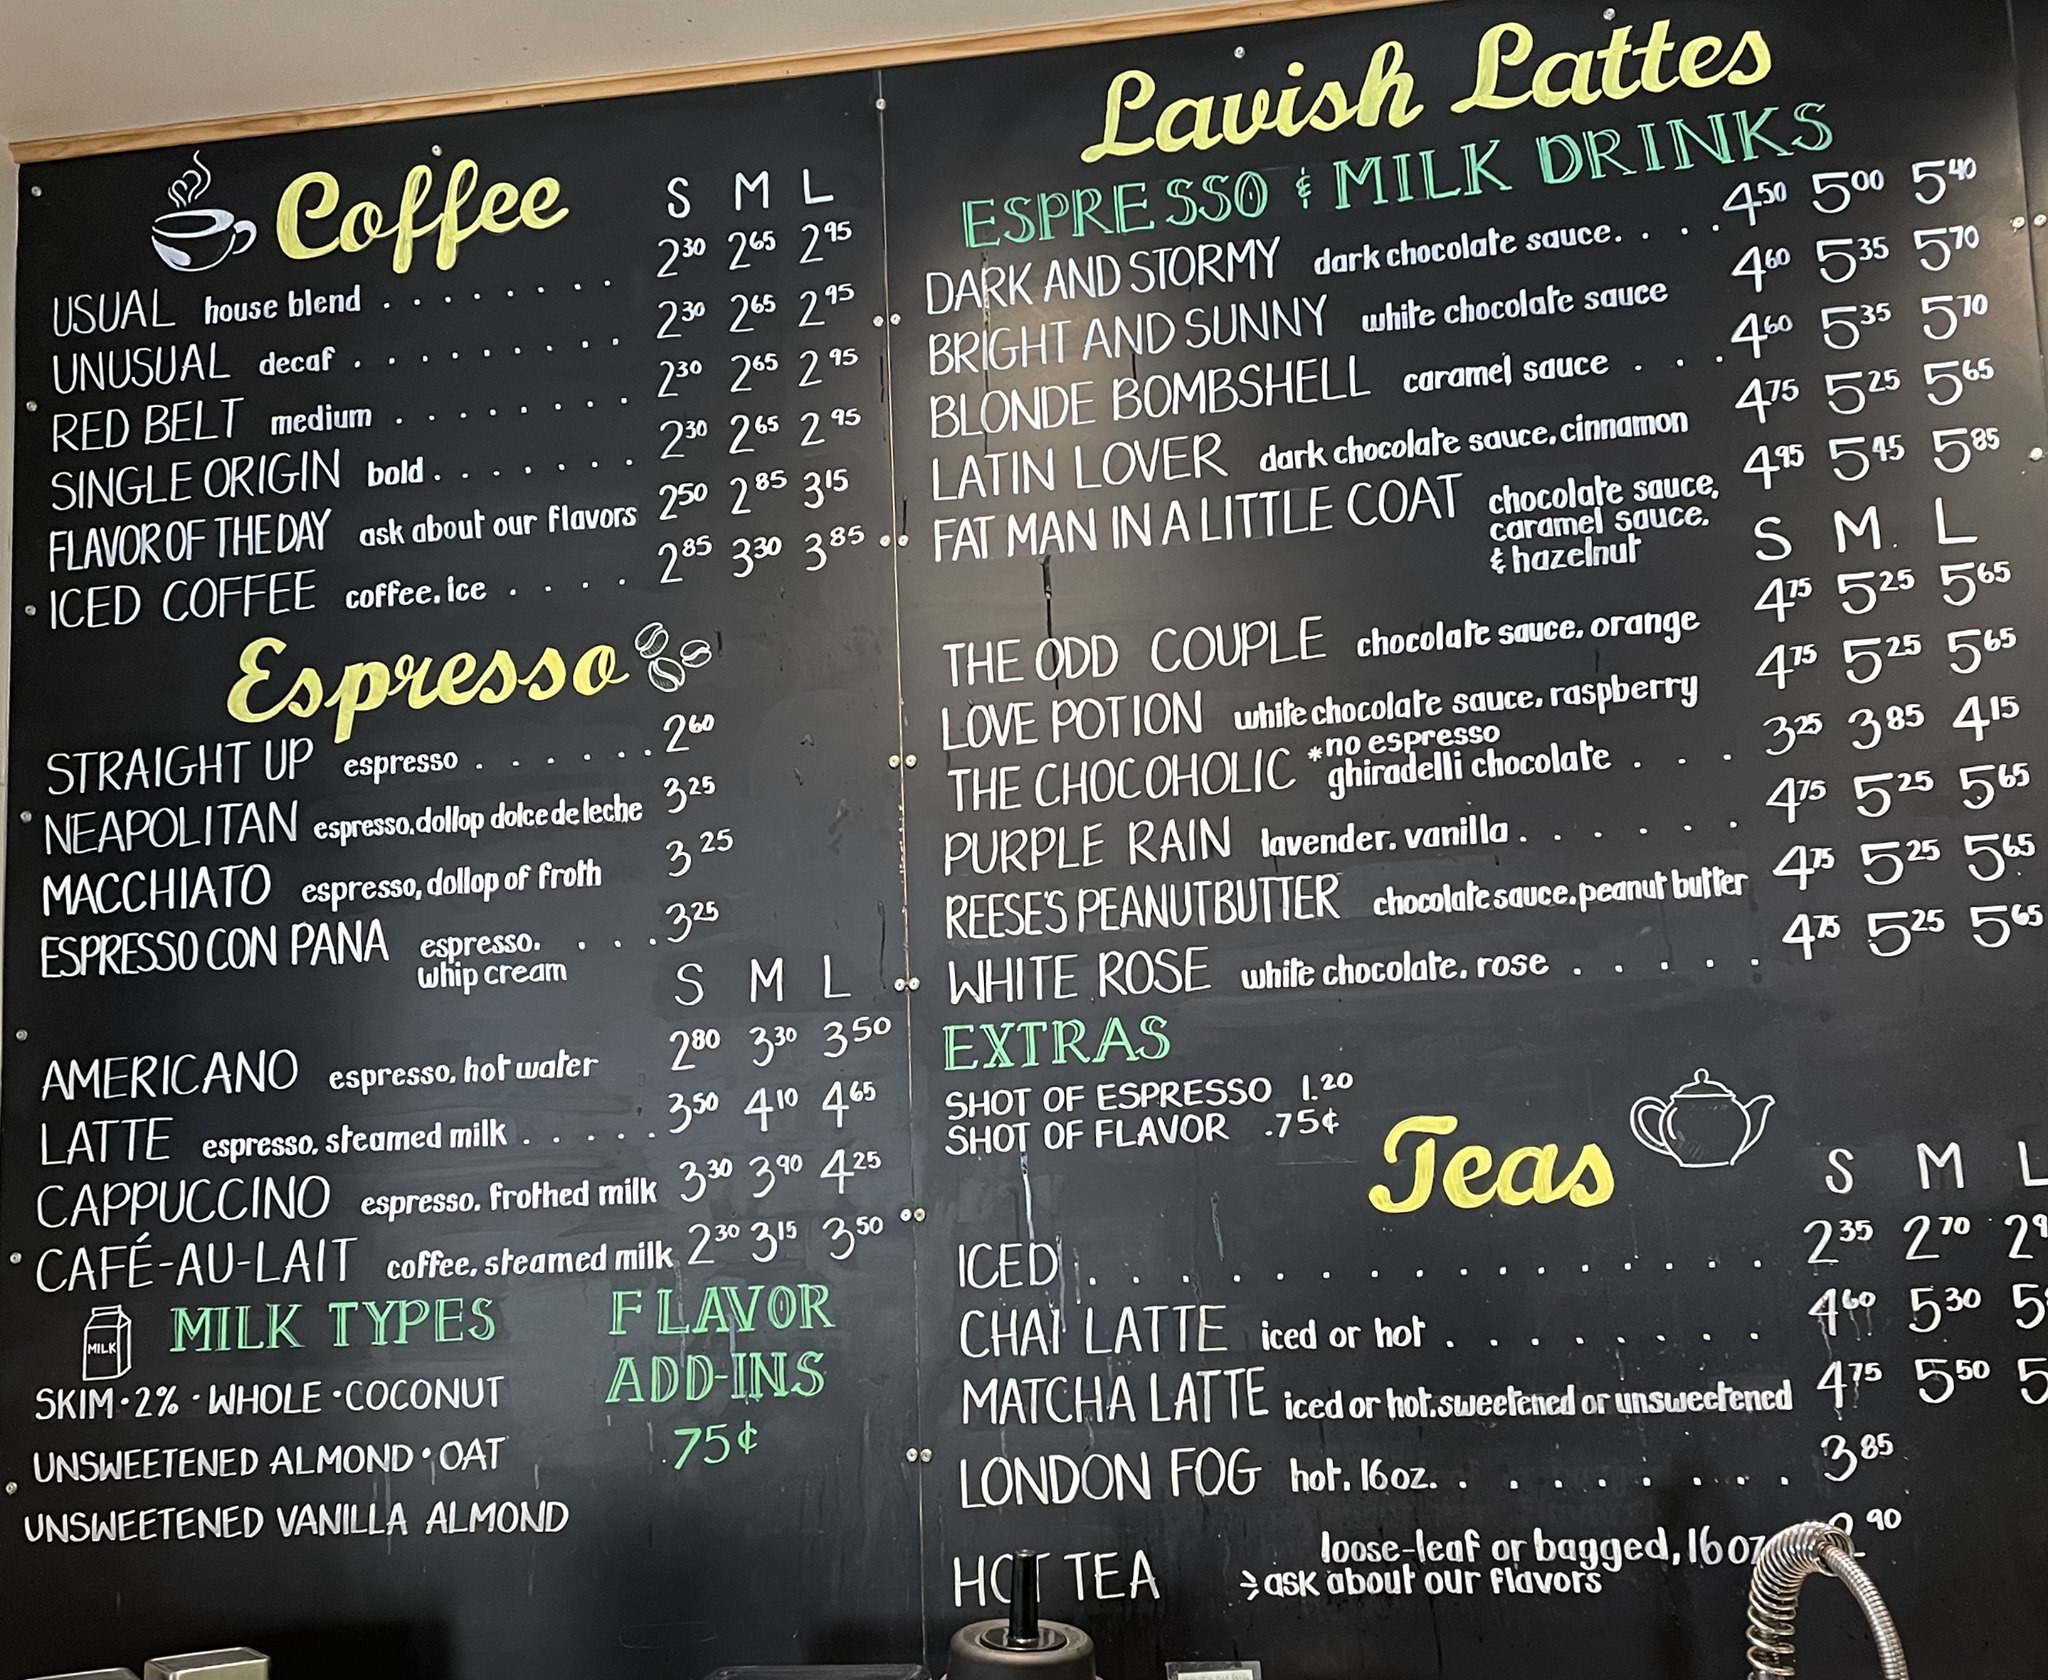 Coffee
S M L
USUAL house blend . . . . . . . . 2 30 2 65 2 95
UNUSUAL decaf . . . . . . . . . 2 30 2 65 2 95
RED BELT medium . . . . . . . . 2 30 2 65 2 95
SINGLE ORIGIN bold . . . . . . . 2 30 2 65 2 95
FLAVOR OF THE DAY ask about our flavors 2 50 2 85 3 15
ICED COFFEE coffee, ice . . . . 2 85 3 30 3 85
Espresso
STRAIGHT UP espresso . . . . . . 2 60
NEAPOLITAN espresso, dollop dolce de leche 3 25
MACCHIATO espresso, dollop of froth 3 25
ESPRESSO CON PANA espresso, . . . 3 25
whip cream
S M L
AMERICANO espresso, hot water 2 80 3 30 3 50
LATTE espresso, steamed milk . . . . . 3 50 4 10 4 65
CAPPUCCINO espresso, frothed milk 3 30 3 90 4 25
CAFÉ-AU-LAIT coffee, steamed milk 2 30 3 15 3 50
MILK
MILK TYPES
SKIM · 2% · WHOLE · COCONUT
UNSWEETENED ALMOND · OAT
UNSWEETENED VANILLA ALMOND
FLAVOR
ADD-INS
.75¢
Lavish Lattes
ESPRESSO & MILK DRINKS
DARK AND STORMY dark chocolate sauce. . . . . 4 50 5 00 5 40
BRIGHT AND SUNNY white chocolate sauce 4 60 5 35 5 70
BLONDE BOMBSHELL caramel sauce . . . . 4 60 5 35 5 70
LATIN LOVER dark chocolate sauce, cinnamon 4 75 5 25 5 65
FAT MAN IN A LITTLE COAT chocolate sauce, 4 95 5 45 5 85
caramel sauce,
& hazelnut
S M L
THE ODD COUPLE chocolate sauce, orange 4 75 5 25 5 65
LOVE POTION white chocolate sauce, raspberry 4 75 5 25 5 65
THE CHOCOHOLIC *no espresso
ghiradelli chocolate . . . 3 25 3 85 4 15
PURPLE RAIN lavender, vanilla . . . . . . 4 75 5 25 5 65
REESE'S PEANUTBUTTER chocolate sauce, peanut butter 4 75 5 25 5 65
WHITE ROSE white chocolate, rose . . . . . 4 75 5 25 5 65
EXTRAS
SHOT OF ESPRESSO 1.20
SHOT OF FLAVOR .75¢
Teas
S M L
ICED . . . . . . . . . . . . . . . . . 2 35 2 70
CHAI LATTE iced or hot . . . . . . . . 4 60 5 30
MATCHA LATTE iced or hot, sweetened or unsweetened 4 75 5 50
LONDON FOG hot, 16 oz. . . . . . . . . 3 85
HOT TEA loose-leaf or bagged, 16 oz 90
ask about our flavors